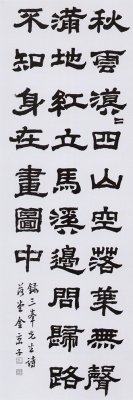 秋雲漠〻四山空落葉無聲
滿地紅立馬溪邊問歸路
不知身在畫圖中
錄三峯先生詩